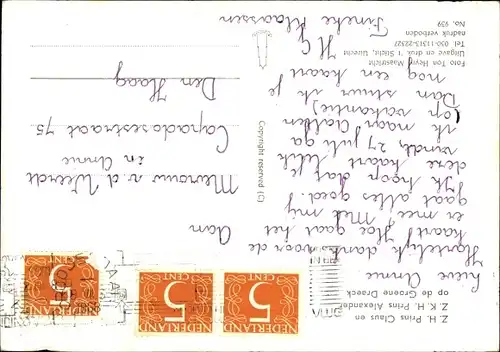 Z. H. Prins Claus en
Z. K. H. Prins Alexander
op de Groene Draeck
Lieve Annie
Hartelijk dank voor de
kaart! Hoe gaat het
er mee Met mij
gaat alles goed!
Ik hoop dat je
deze kaart leuk
vindt, 27 juli ga
ik naar Aalten
(op vakantie)
Dan stuur ik je
nog een kaart
Fineke Klaassen
Foto Ton Heyne Maastricht
Uitgave en druk 't Sticht, Utrecht
Tel 030-11313-22327
nadruk verboden
No. 939
Copyright reserved (C)
Aan
Mevrouw v. d. Weerdt
Capadosestraat 75
Den Haag
NEDERLAND
5
CENT
NEDERLAND
5
CENT
NEDERLAND
5
CENT